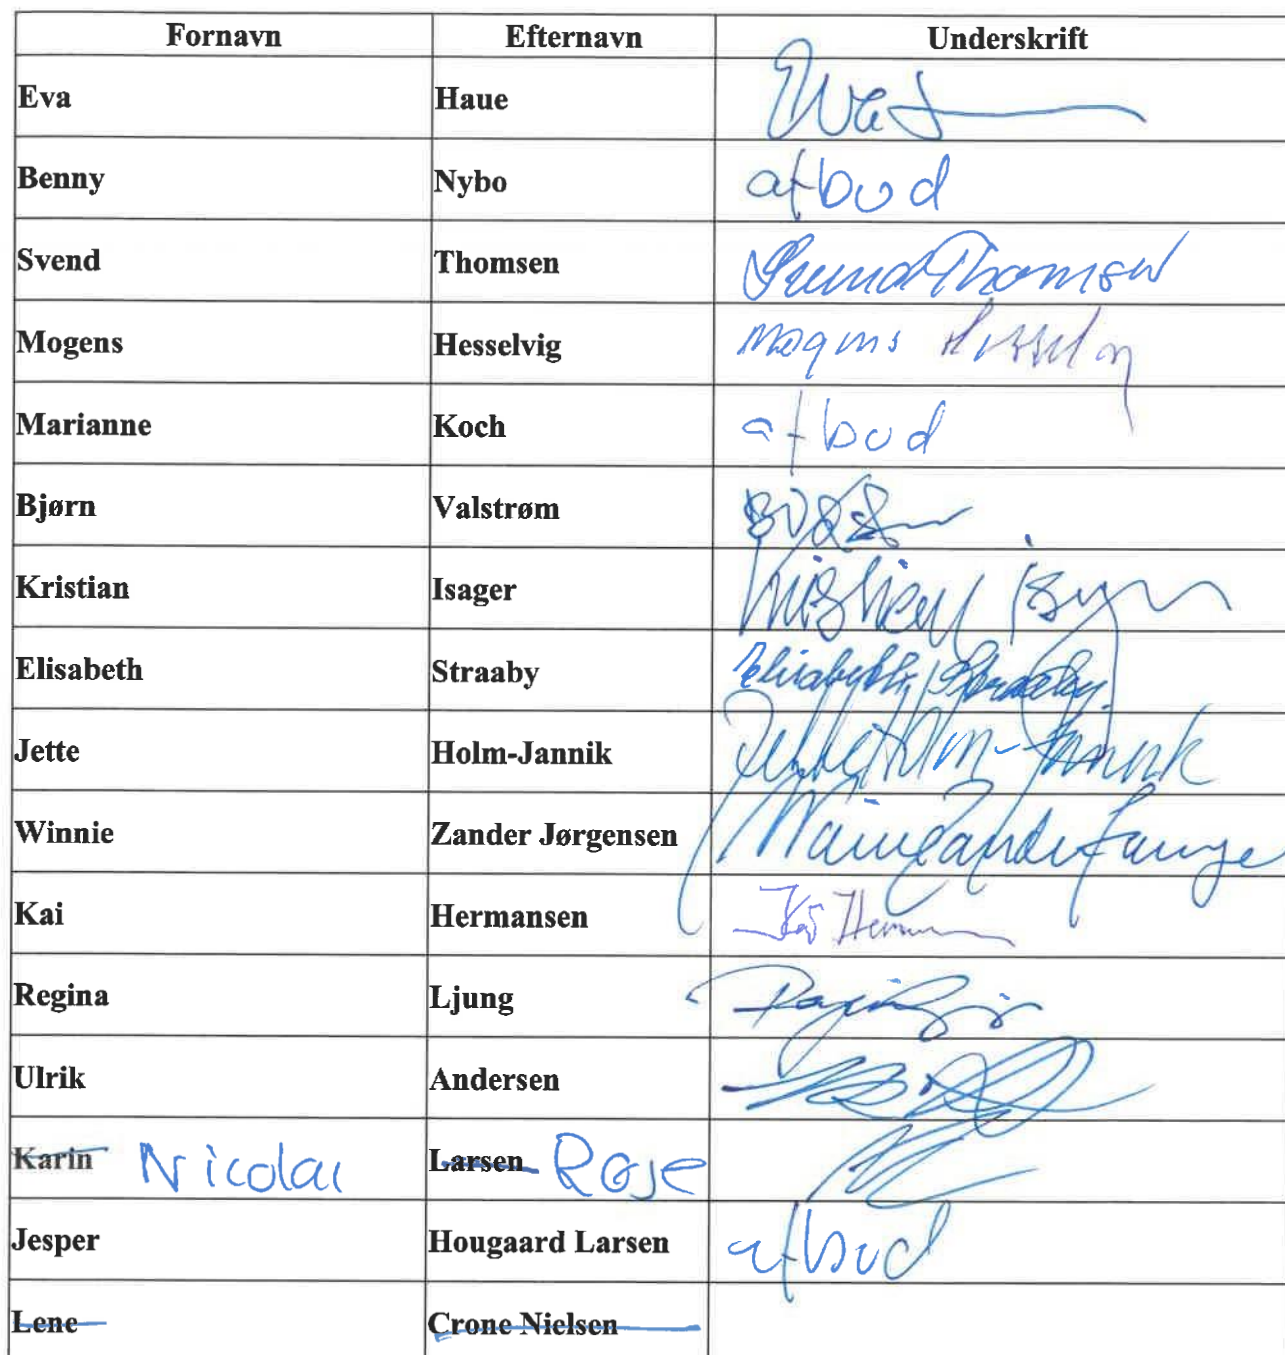 Fornavn Efternavn Underskrift
Eva Haue
Benny Nybo afbud
Svend Thomsen Svend Thomsen
Mogens Hesselvig Mogens Hesselvig
Marianne Koch afbud
Bjørn Valstrøm
Kristian Isager Kristian Isager
Elisabeth Straaby Elisabeth Straaby
Jette Holm-Jannik Jette Holm-Jannik
Winnie Zander Jørgensen
Kai Hermansen Kai
Regina Ljung
Ulrik Andersen
Karin Nicolai Larsen Rose
Jesper Hougaard Larsen afbud
Lene Crone Nielsen